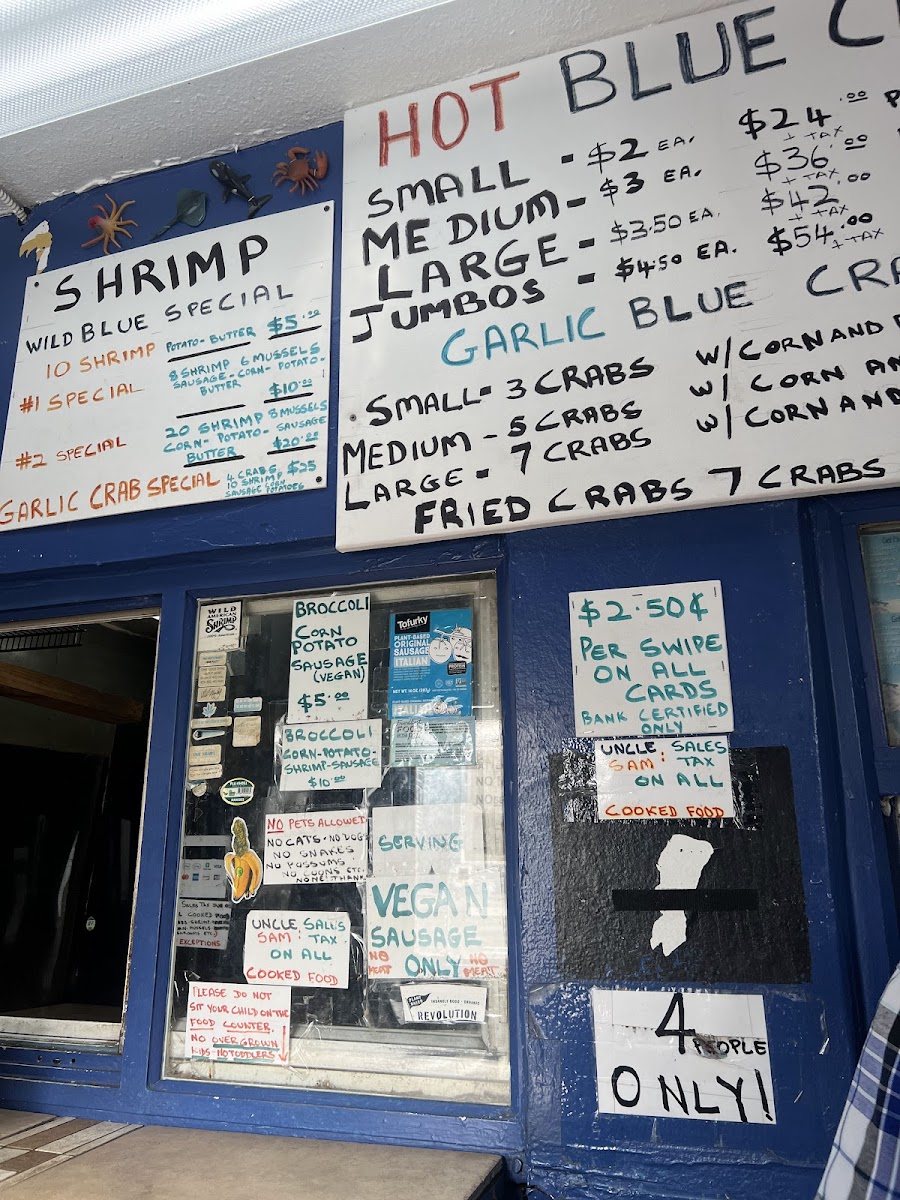 SHRIMP
WILD BLUE SPECIAL
10 SHRIMP POTATO-BUTTER $5.00
#1 SPECIAL 8 SHRIMP 6 MUSSELS
SAUSAGE-CORN-POTATO-
BUTTER
$10.00
#2 SPECIAL 20 SHRIMP 8 MUSSELS
CORN-POTATO-SAUSAGE
BUTTER $20.00
GARLIC CRAB SPECIAL 4 CRABS $25
10 SHRIMP
SAUSAGE CORN
POTATOES
HOT BLUE C
SMALL - $2 EA. $24.00
+ TAX
MEDIUM - $3 EA. $36.00
+ TAX
LARGE - $3.50 EA. $42.00
+ TAX
JUMBOS - $4.50 EA. $54.00
+ TAX
GARLIC BLUE CRA
SMALL- 3 CRABS W/CORN AND
MEDIUM - 5 CRABS W/ CORN AN
LARGE - 7 CRABS W/ CORN AND
FRIED CRABS 7 CRABS
WILD
AMERICAN
SHRIMP
BROCCOLI
CORN
POTATO
SAUSAGE
(VEGAN)
$5.00
Tofurky
PLANT-BASED
ORIGINAL
SAUSAGE
ITALIAN
BROCCOLI
CORN-POTATO-
SHRIMP-SAUSAGE
$10.00
NO PETS ALLOWED
NO CATS-NO DOGS
NO SNAKES
NO POSSUMS
NO COONS ETC.
NONE! THANK
SERVING
VEGAN
SAUSAGE
NO MEAT ONLY NO MEAT
UNCLE SALES
SAM: TAX
ON ALL
COOKED FOOD
REVOLUTION
PLEASE DO NOT
SIT YOUR CHILD ON THE
FOOD COUNTER.
NO OVERGROWN
KIDS-NO TODDLERS
SALES TAX
EXCEPTIONS
$2.50¢
PER SWIPE
ON ALL
CARDS
BANK CERTIFIED
ONLY
UNCLE SALES
SAM: TAX
ON ALL
COOKED FOOD
4
PEOPLE
ONLY!